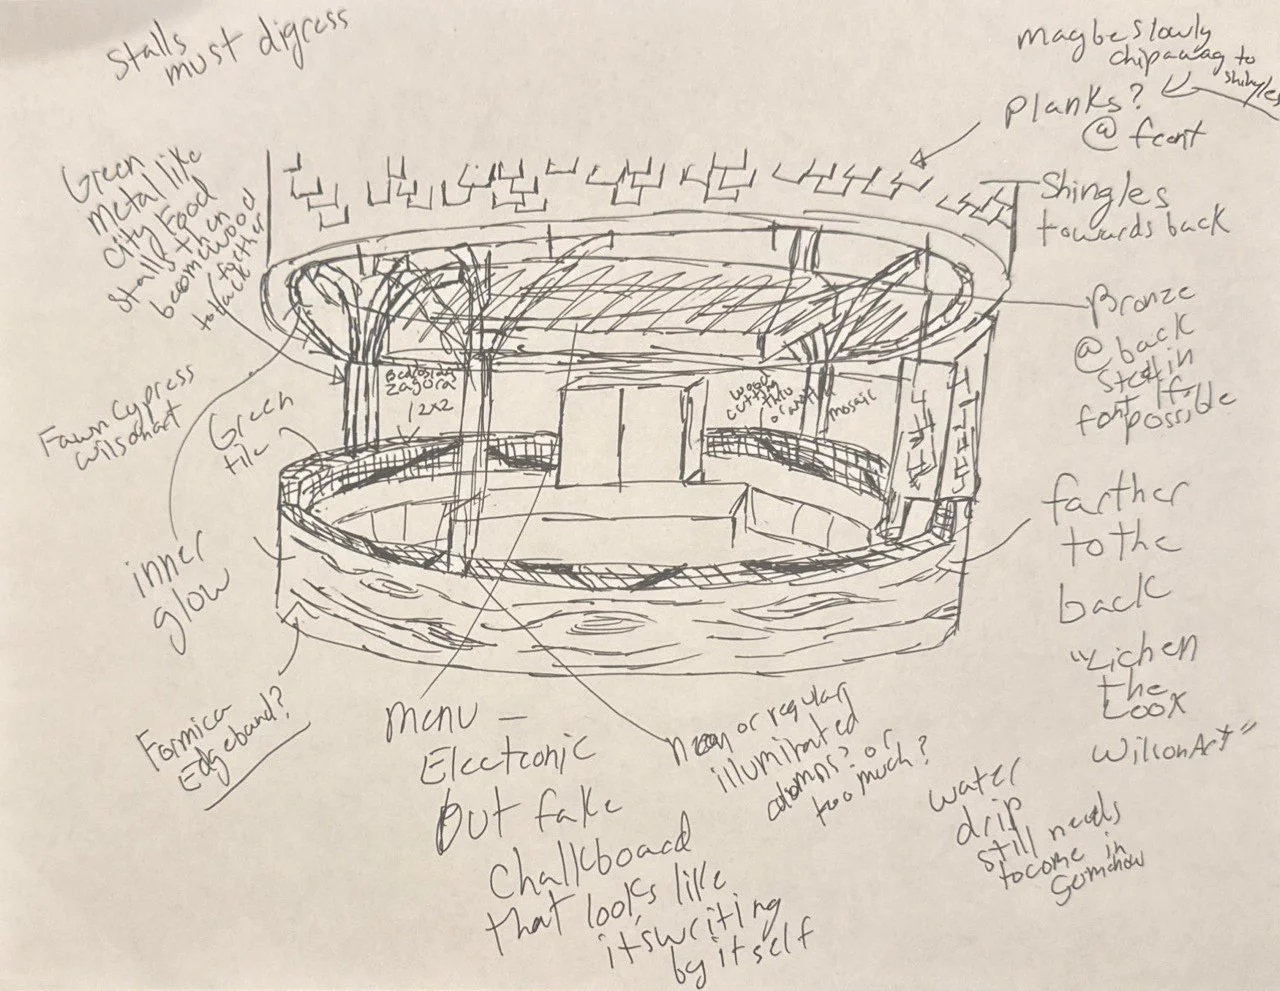 Stalls
must digress
maybe slowly
chip away to
shingles
Planks?
@ front
Shingles
towards back
Green
metal like
city food
stalls then
become wood
farther
to back
Bronze
@ back
Steel in
front if
possible
Fawn Cypress
wilsonart
Green
tile
Bedrosians
Zagora
12x2
wood
cutting
thru
mosaic
inner
glow
farther
to the
back
"Lichen
the
Look
WilsonArt"
Formica
Edgeband?
menu –
Electronic
but fake
chalkboard
that looks like
it's writing
by itself
neon or regular
illuminated
columns? or
too much?
water
drip
still needs
to come in
somehow